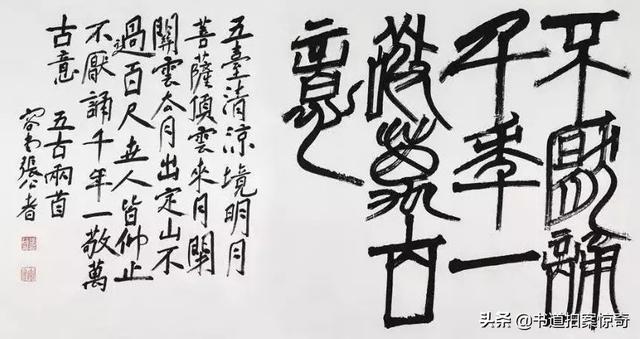 不厭誦
千年一
敬萬古
意
五臺清涼境明月
菩薩頂雲來月關
開雲去月出定山不
過百尺世人皆仰止
不厭誦千年一敬萬
古意 五古兩首
張公者
头条 @书道拍案惊奇